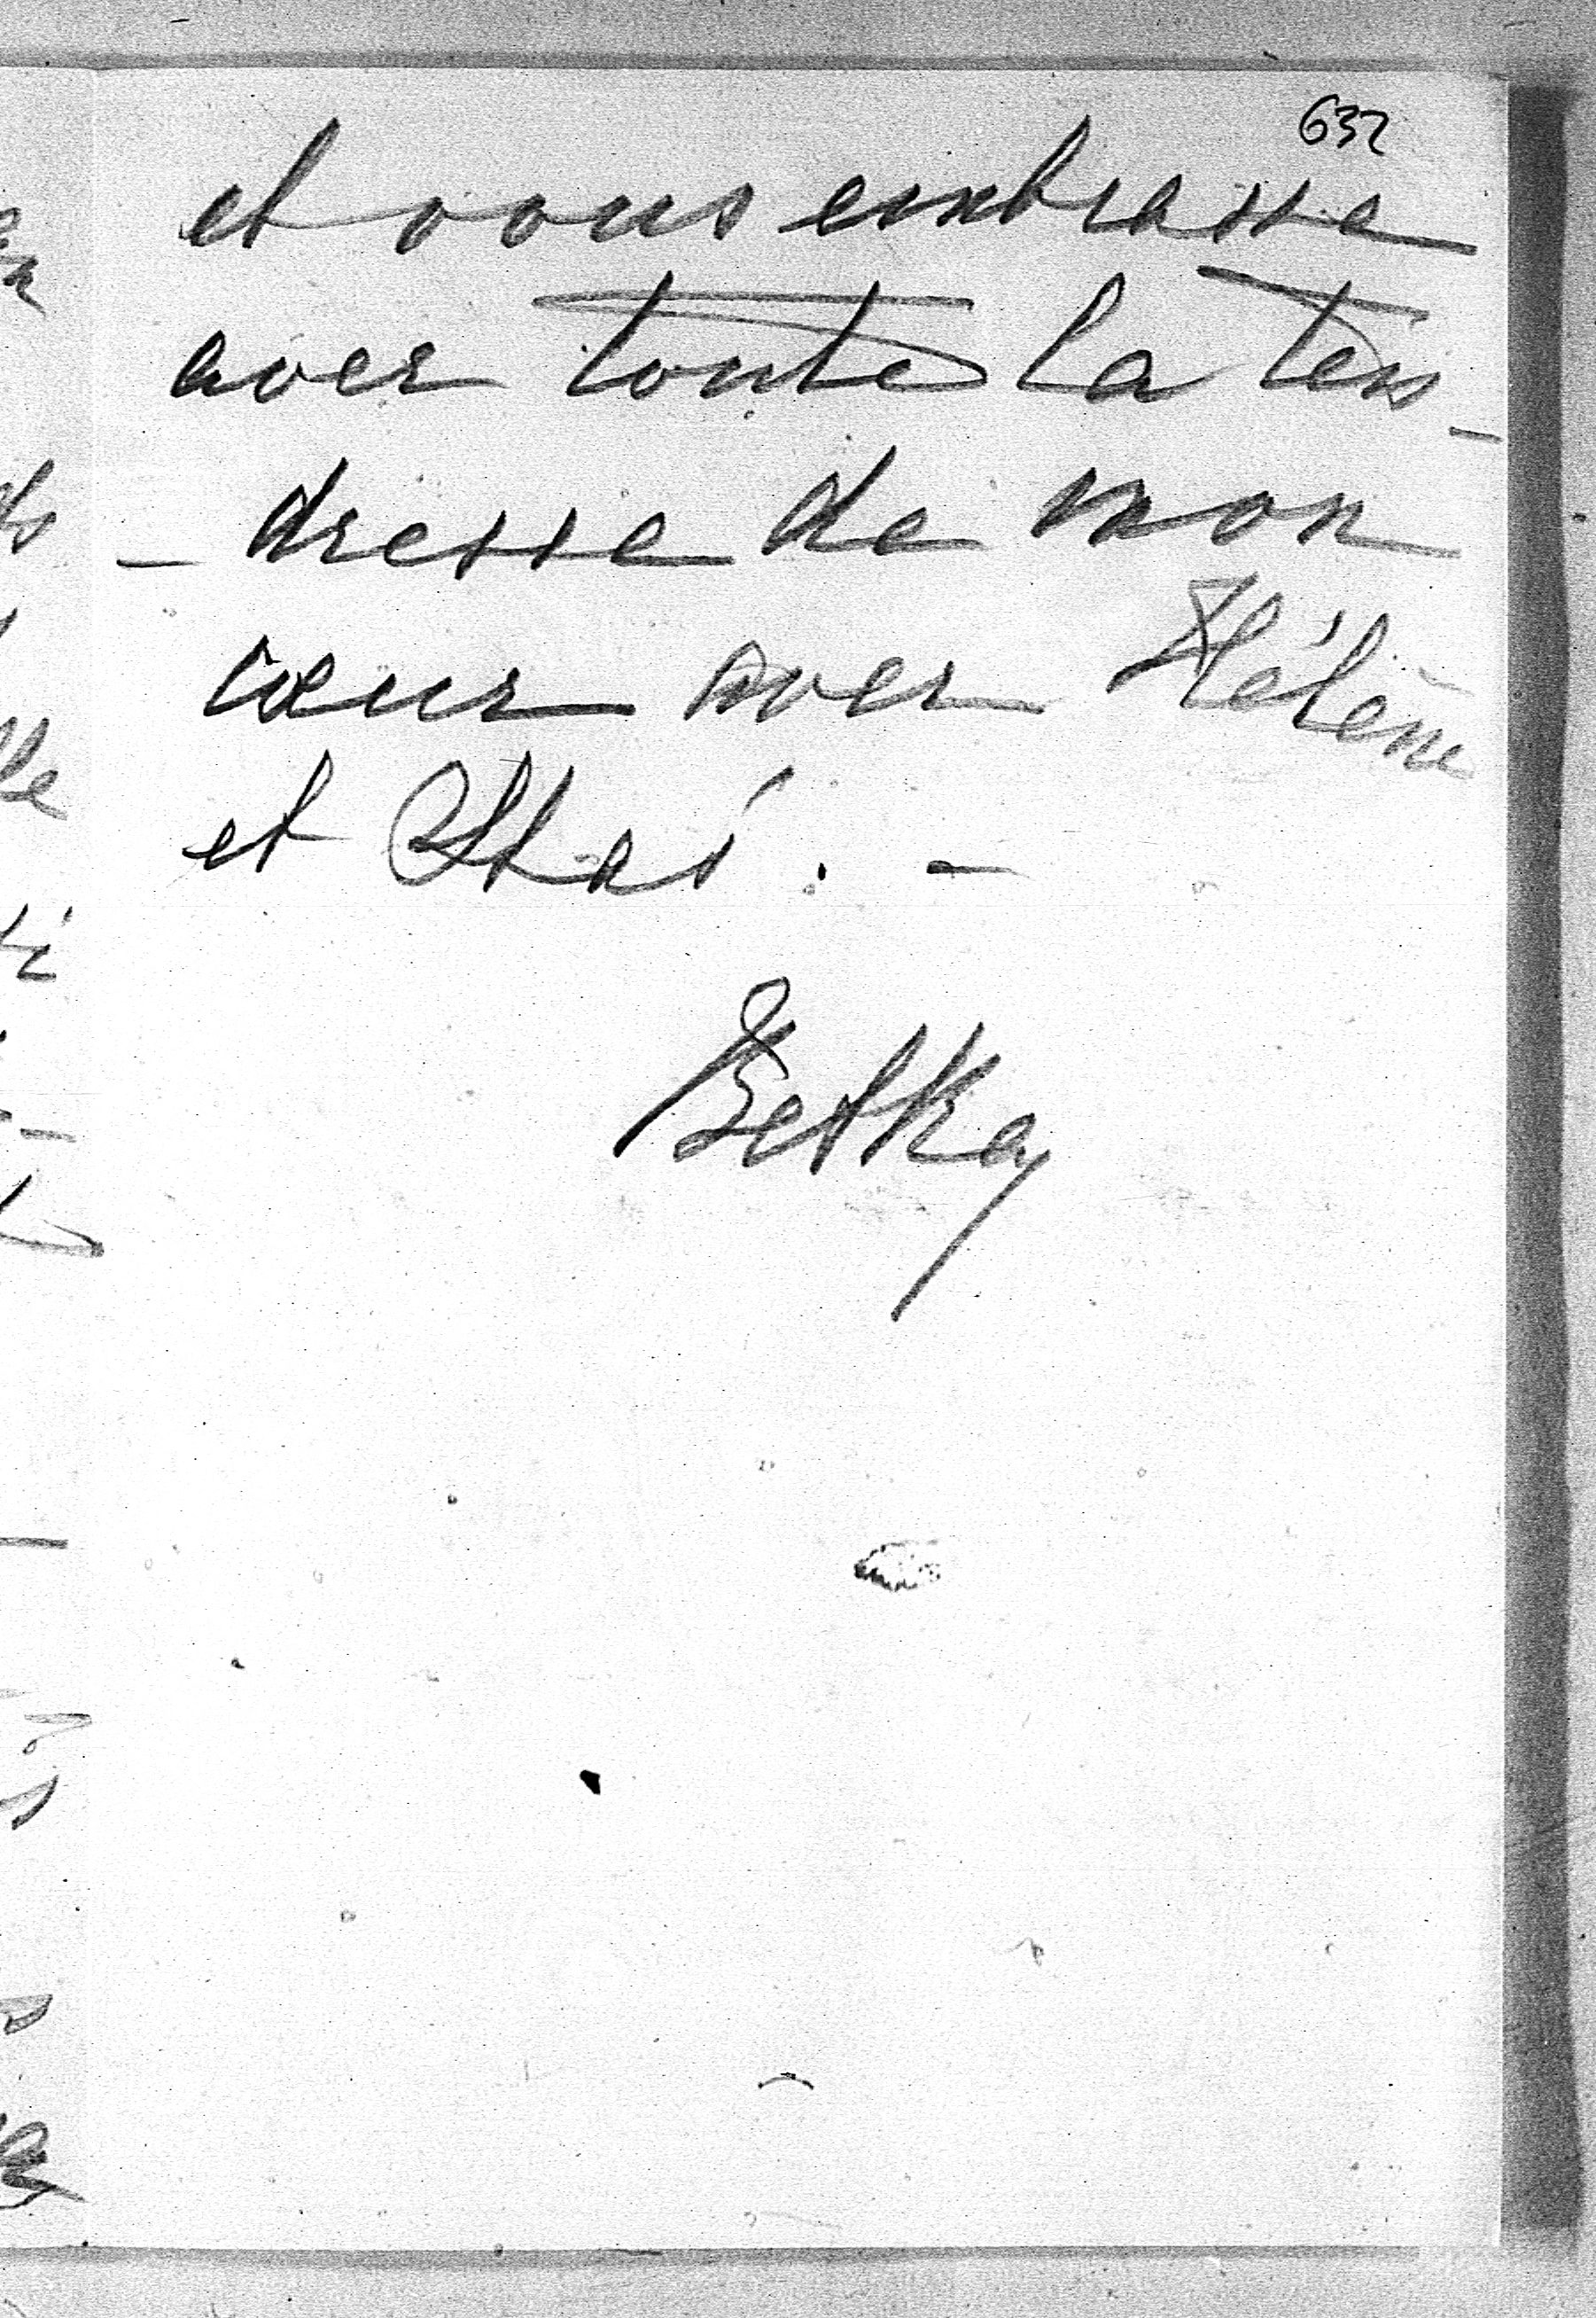 632
et vous embrasse
avec toute la ten-
-dresse de mon
cœur avec Hélène
et Stas. -
Betka